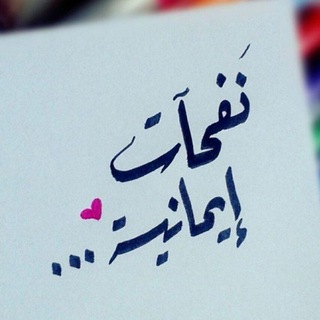 نَفحآت
إيمانية...